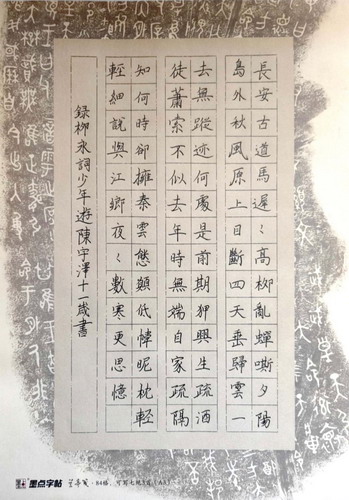 長安古道馬遲〻高柳亂蟬嘶夕陽
島外秋風原上目斷四天垂歸雲一
去無蹤迹何處是前期狎興生疏酒
徒蕭索不似去年時無端自家疏隔
知何時卻擁秦雲態願低幃昵枕輕
輕細說與江鄉夜〻數寒更思憶
錄柳永詞少年遊陳宇澤十一歲書
墨点字帖